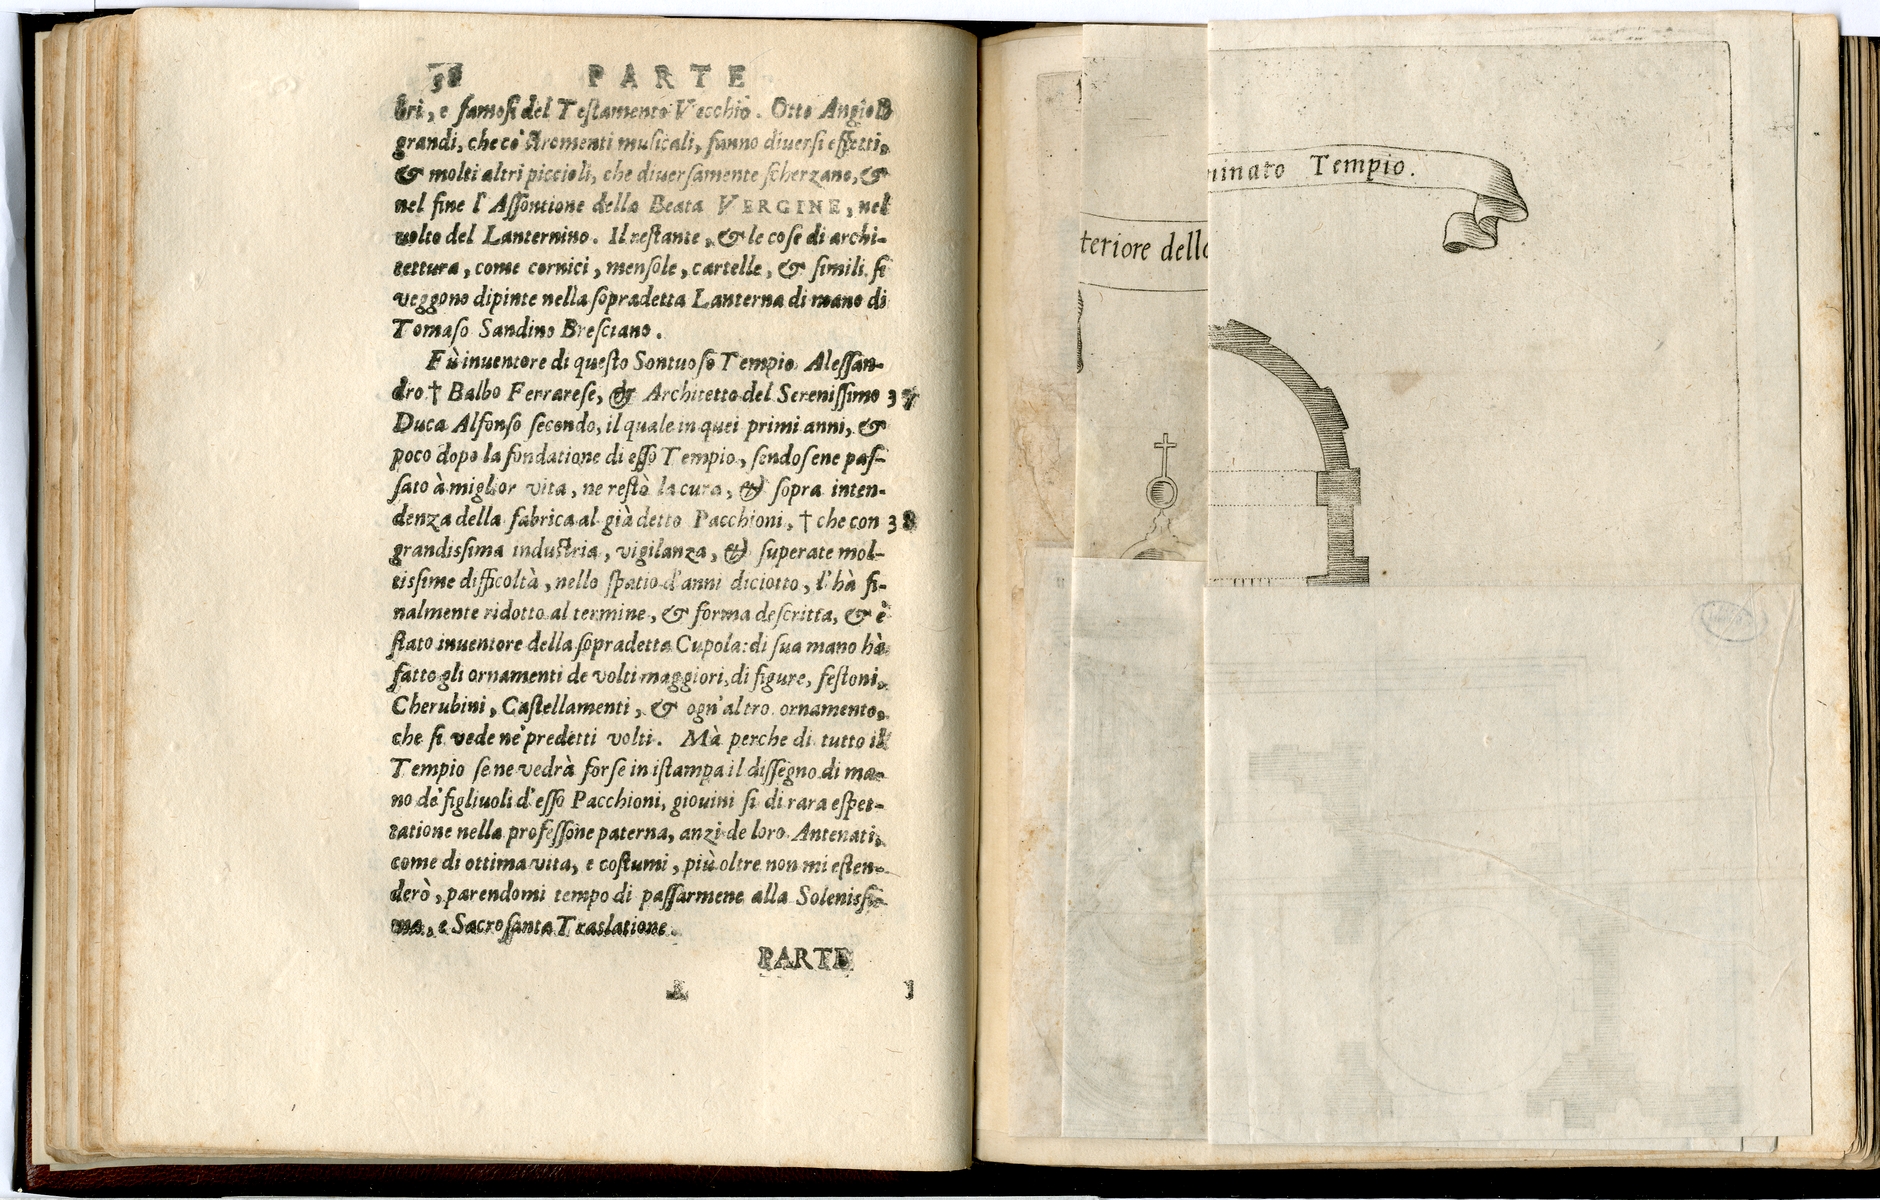 38 PARTE
bri, e famosi del Testamento Vecchio. Otto Angioli
grandi, che cõ stromenti musicali, fanno diuersi effetti,
& molti altri piccioli, che diuersamente scherzano, &
nel fine l'Assontione della Beata VERGINE, nel
volto del Lanternino. Il restante, & le cose di archi-
tettura, come cornici, mensole, cartelle, & simili si
veggono dipinte nella sopradetta Lanterna di mano di
Tomaso Sandino Bresciano.
Fù inuentore di questo Sontuoso Tempio Alessan-
dro † Balbo Ferrarese, & Architetto del Serenissimo 37
Duca Alfonso secondo, il quale in quei primi anni, &
poco dopo la fondatione di esso Tempio, sendosene pas-
sato à miglior vita, ne restò la cura, & sopra inten-
denza della fabrica al già detto Pacchioni, † che con 38
grandissima industria, vigilanza, & superate mol-
tissime difficoltà, nello spatio d'anni diciotto, l'hà fi-
nalmente ridotto al termine, & forma descritta, & è
stato inuentore della sopradetta Cupola: di sua mano hà
fatto gli ornamenti de volti maggiori, di figure, festoni,
Cherubini, Castellamenti, & ogn'altro ornamento,
che si vede ne' predetti volti. Mà perche di tutto il
Tempio se ne vedrà forse in istampa il dissegno di ma-
no de' figliuoli d'esso Pacchioni, giouini sì di rara espet-
tatione nella professone paterna, anzi de loro Antenati,
come di ottima vita, e costumi, più oltre non mi esten-
derò, parendomi tempo di passarmene alla Solenissi-
ma, e Sacrosanta Traslatione.
PARTE
minato Tempio.
teriore dello